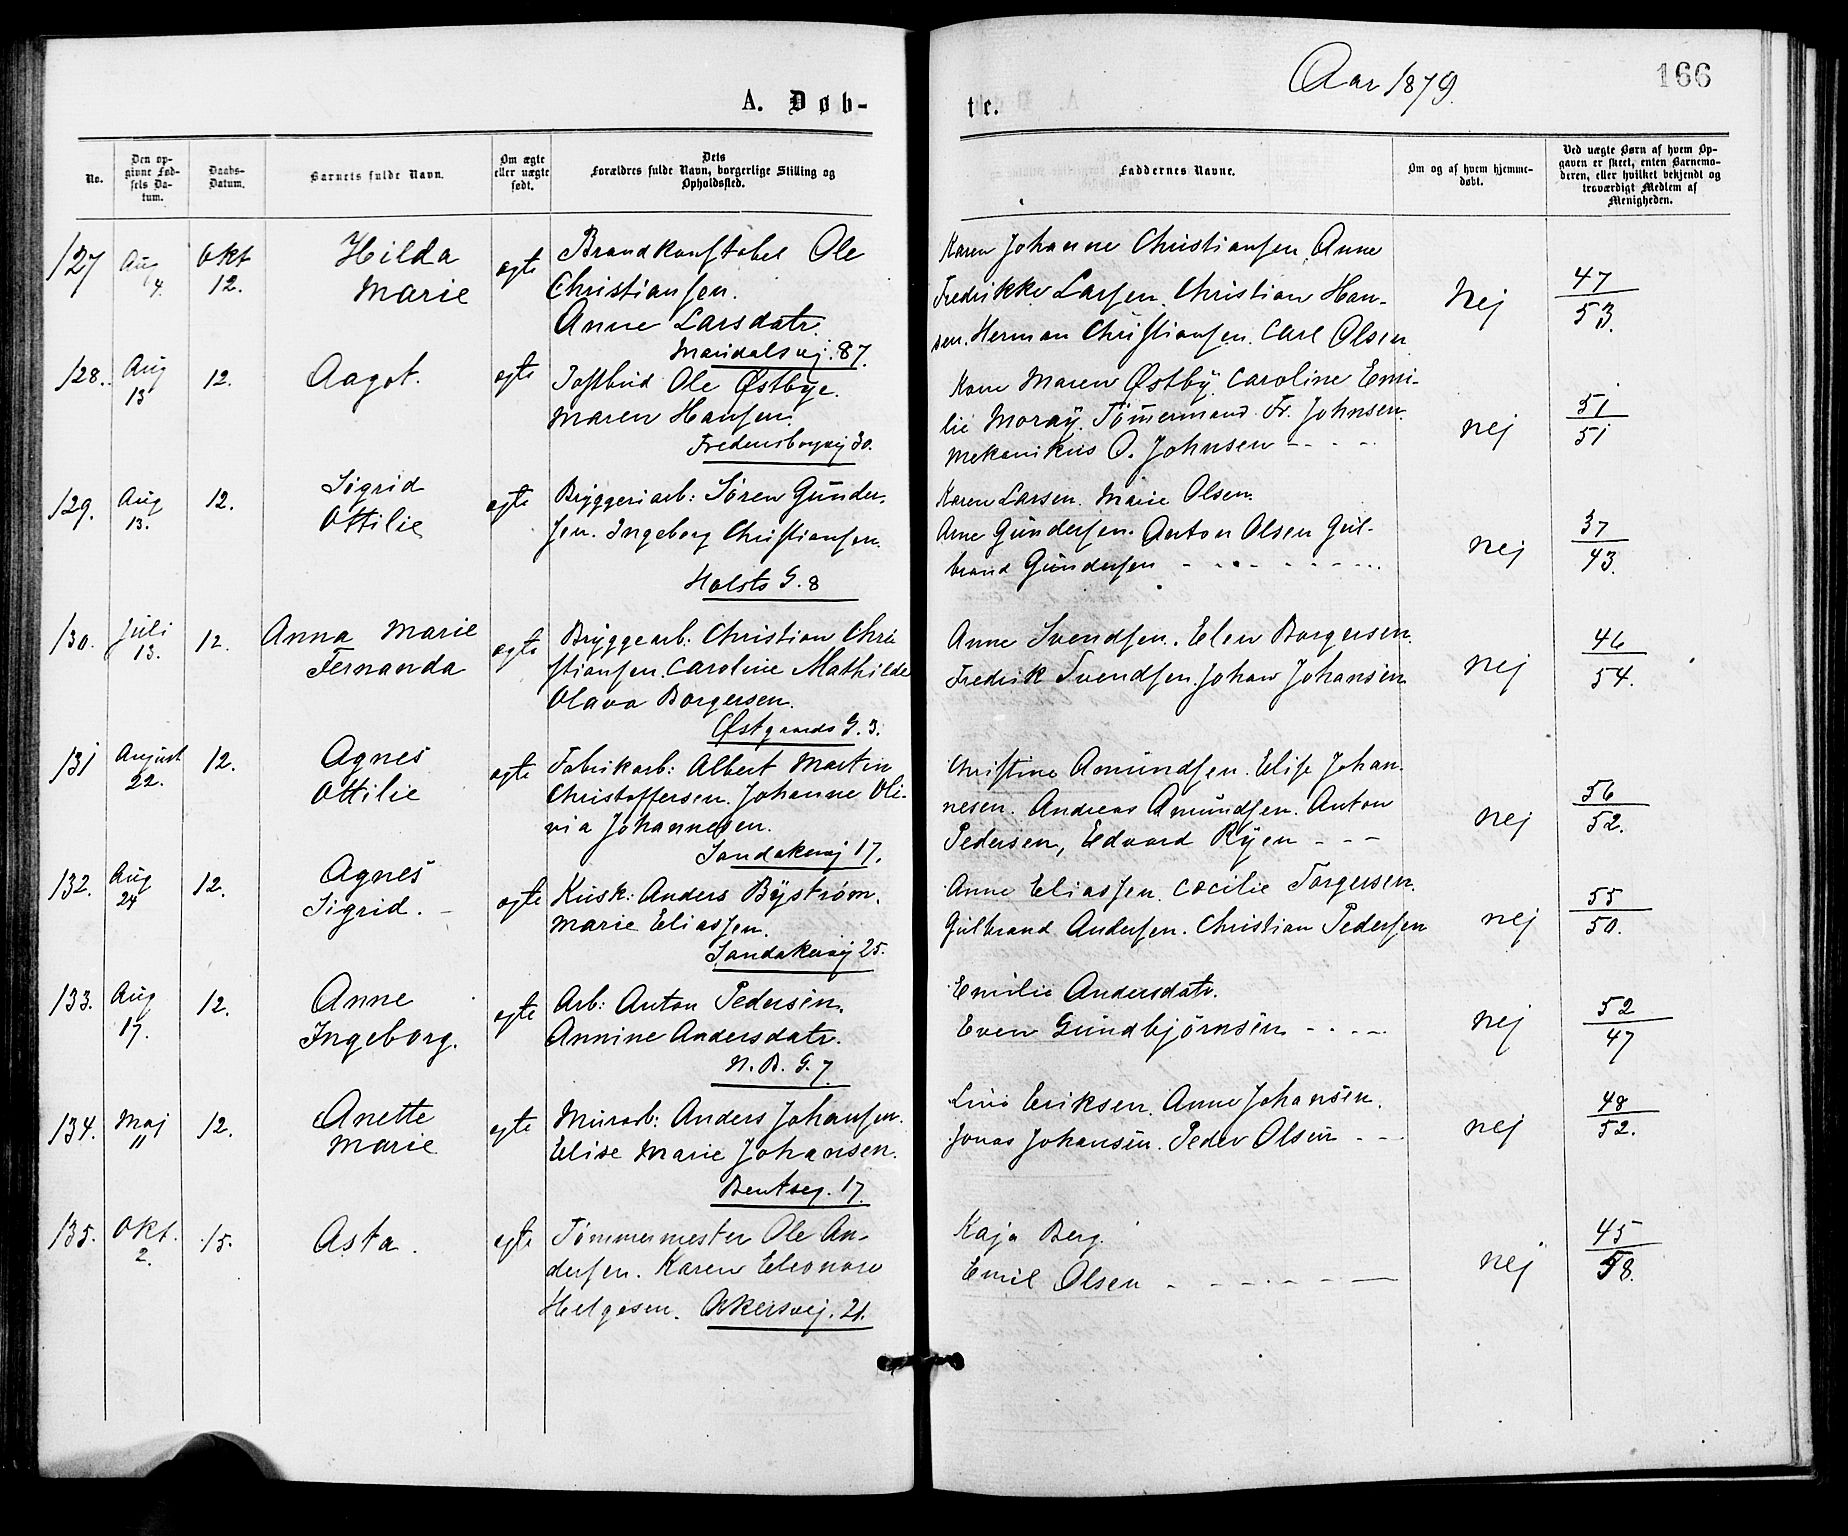 Aar 1879.
166
A. Døb-
te.
No.
Den op-
givne Fød-
sels Da-
tum.
Daabs-
Datum.
Barnets fulde Navn.
Om ægte
eller uægte
født.
Dets
Forældres fulde Navn, borgerlige Stilling og
Opholdssted.
Faddernes Navne.
Om og af hvem hjemme-
døbt.
Ved uægte Børn af hvem Op-
gaven er skeet, enten Barnemo-
deren, eller hvilket bekjendt og
troværdigt Medlem af
Menigheden.
127
Aug
4.
Okt
12.
Hilda
Marie
egte
Brandkonstabel Ole
Christiansen.
Anne Larsdatr.
Maridalsvej. 87.
Karen Johanne Christiansen, Anne
Fredrikke Larsen. Christian Han-
sen. Herman Christiansen. Carl Olsen
Nej
47
53.
128.
Aug
13
12.
Aagot.
egte
Ole Østbye.
Maren Hansen.
Fredensborgvej 30.
Kone Maren Østby. Caroline Emi-
lie Moraÿ. Tömermand Fr. Johnsen.
Mekanikus O. Johnsen - - - -
nej
51
51
129.
Aug
13.
12.
Sigrid
Ottilie
egte
Bryggeriarb: Sören Gunder-
sen. Ingeborg Christiansen.
Holsts G. 8
Karen Larsen. Marie Olsen.
Arne Gundersen. Anton Olsen Gul-
brand Gundersen - - - - - - -
nej
37
43.
130.
Juli
13.
12.
Anna Marie
Fernanda
egte
Bryggearb. Christian Chri
stiansen. Caroline Mathilde
Olava Borgersen.
Østgaards G. 3.
Anne Svendsen. Elen Borgersen.
Fredrik Svendsen. Johan Johansen
nej
46
54.
131
August
22.
12.
Agnes
Ottilie
egte
Fabrikarb: Albert Martin
Christoffersen. Johanne Oli-
via Johannesen.
Sandakervej 17.
Christine Amundsen. Elise Johan-
nesen. Andreas Amundsen. Anton
Pedersen, Edvard Ryen - - -
nej
56
52.
132.
Aug
24
12.
Agnes
Sigrid. -
egte
Kusk: Anders Bÿström.
Marie Eliassen.
Sandakervej 25.
Anne Eliassen. Cæcilie Torgersen.
Gulbrand Andersen. Christian Pedersen
nej
55
50.
133.
Aug
17.
12.
Anne
Ingeborg.
egte
Arb: Anton Pedersen.
Annine Andersdatr.
N. B. G. 7
Emilie Andersdatr.
Even Gundbjörnsen - - - -
nej
52
47
134.
Maj
11
12.
Anette
Marie
egte
Murarb: Anders Johansen.
Elise Marie Johansen.
Bentseg. 17.
Lina Eriksen. Anne Johansen.
Jonas Johansen. Peder Olsen - -
nej
48
52.
135.
Okt.
2.
15.
Asta.
egte
Tömmermester Ole An-
dersen. Karen Eleonore
Helgesen. Akersvej. 21.
Kaja Berg.
Emil Olsen - - - - - -
nej
45
58.